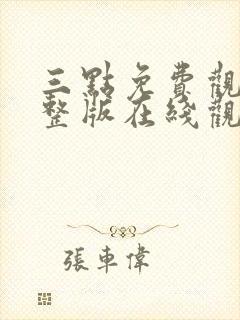 三點免費觀
整版在线觀
張車偉